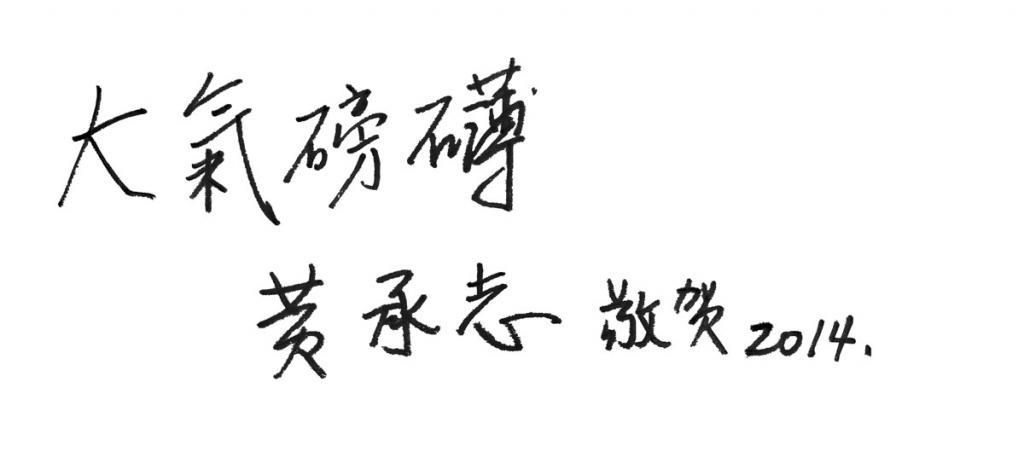 大氣磅礡
黄承志 敬贺 2014.